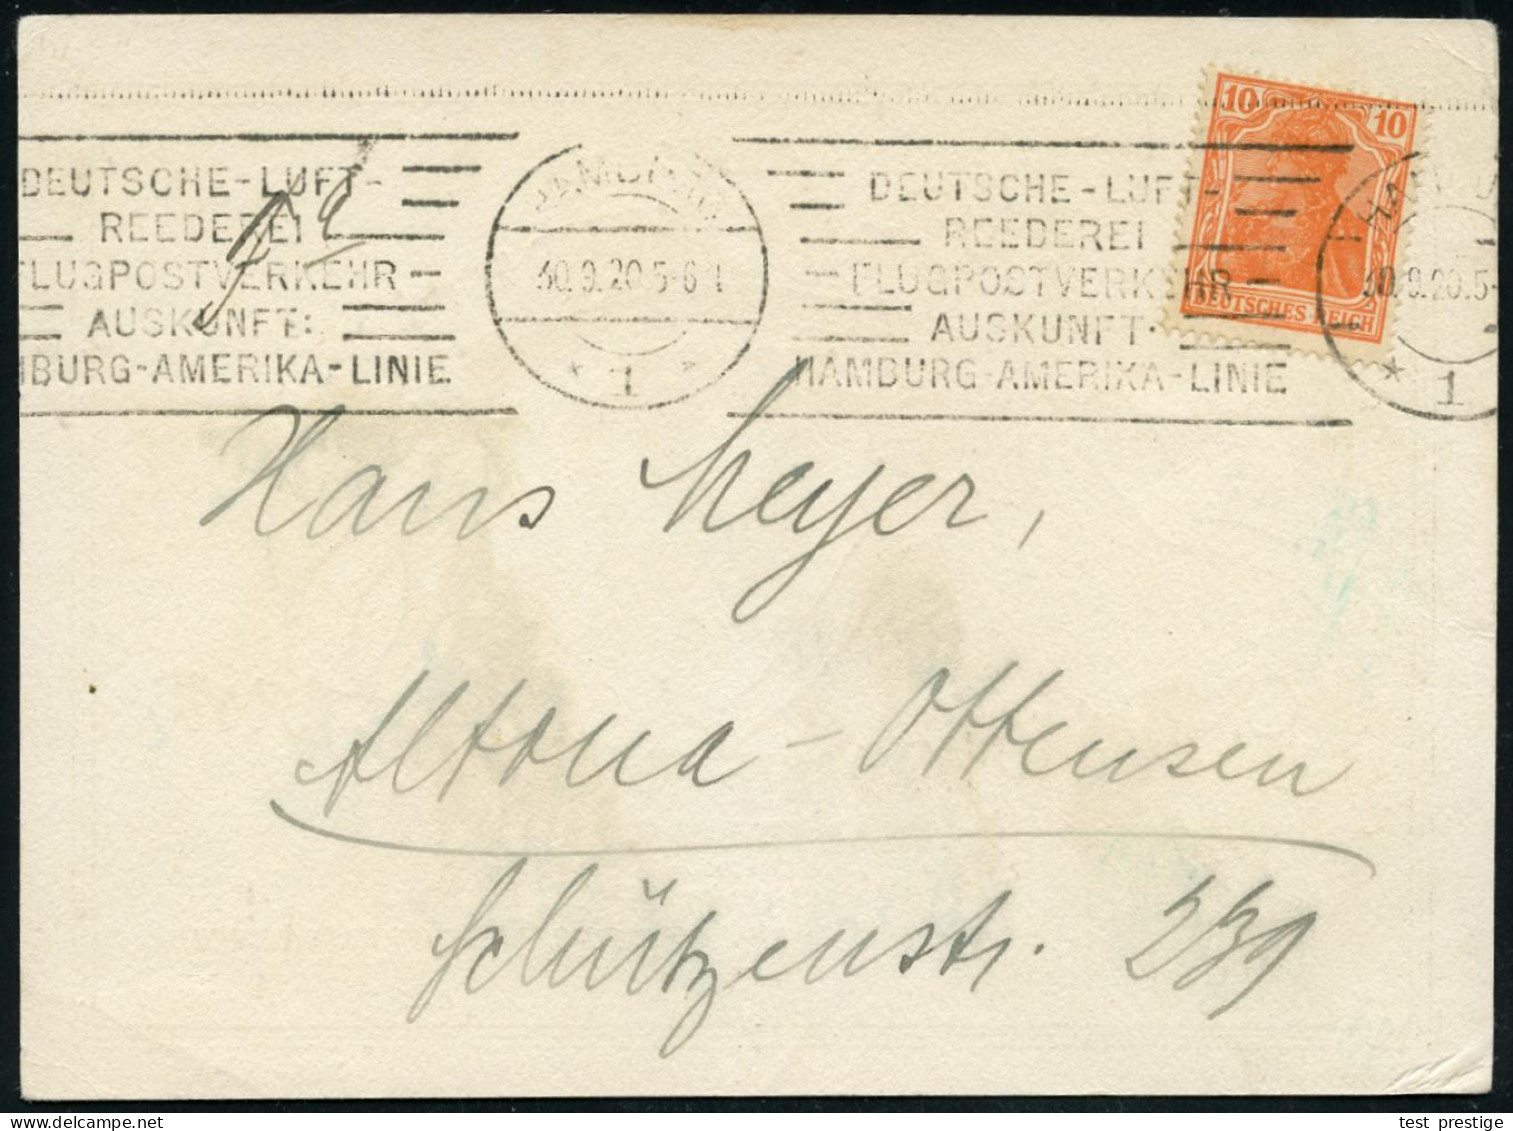 10 10
DEUTSCHE-LUFT-
REEDEREI
FLUGPOSTVERKEHR
AUSKUNFT:
BURG-AMERIKA-LINIE
HAMBURG
30.9.20.5-6
* 1 *
DEUTSCHE-LUFT-
REEDEREI
FLUGPOSTVERKEHR
AUSKUNFT:
HAMBURG-AMERIKA-LINIE
DEUTSCHES REICH
30.9.20.5-
* 1
Hans Meyer,
Altona-Ottensen
Schützenstr. 239
test_prestige